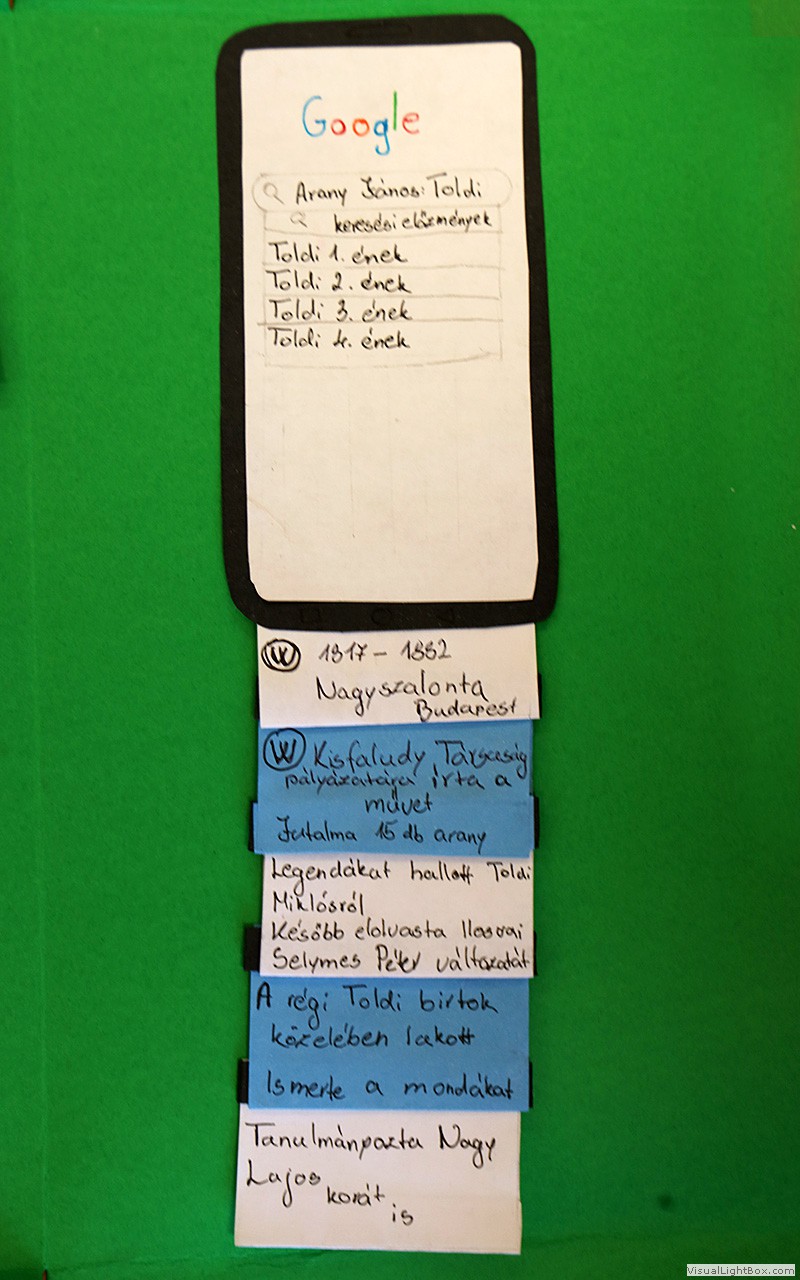 Google
Arany János: Toldi
keresési előzmények
Toldi 1. ének
Toldi 2. ének
Toldi 3. ének
Toldi 4. ének
W 1817 – 1882
Nagyszalonta
Budapest
W Kisfaludy Társaság
pályázatára írta a
művet
Jutalma 15 db arany
Legendákat hallott Toldi
Miklósról
Később elolvasta Ilosvai
Selymes Péter változatát
A régi Toldi birtok
közelében lakott
Ismerte a mondákat
Tanulmánpozta Nagy
Lajos korát is
VisualLightBox.com